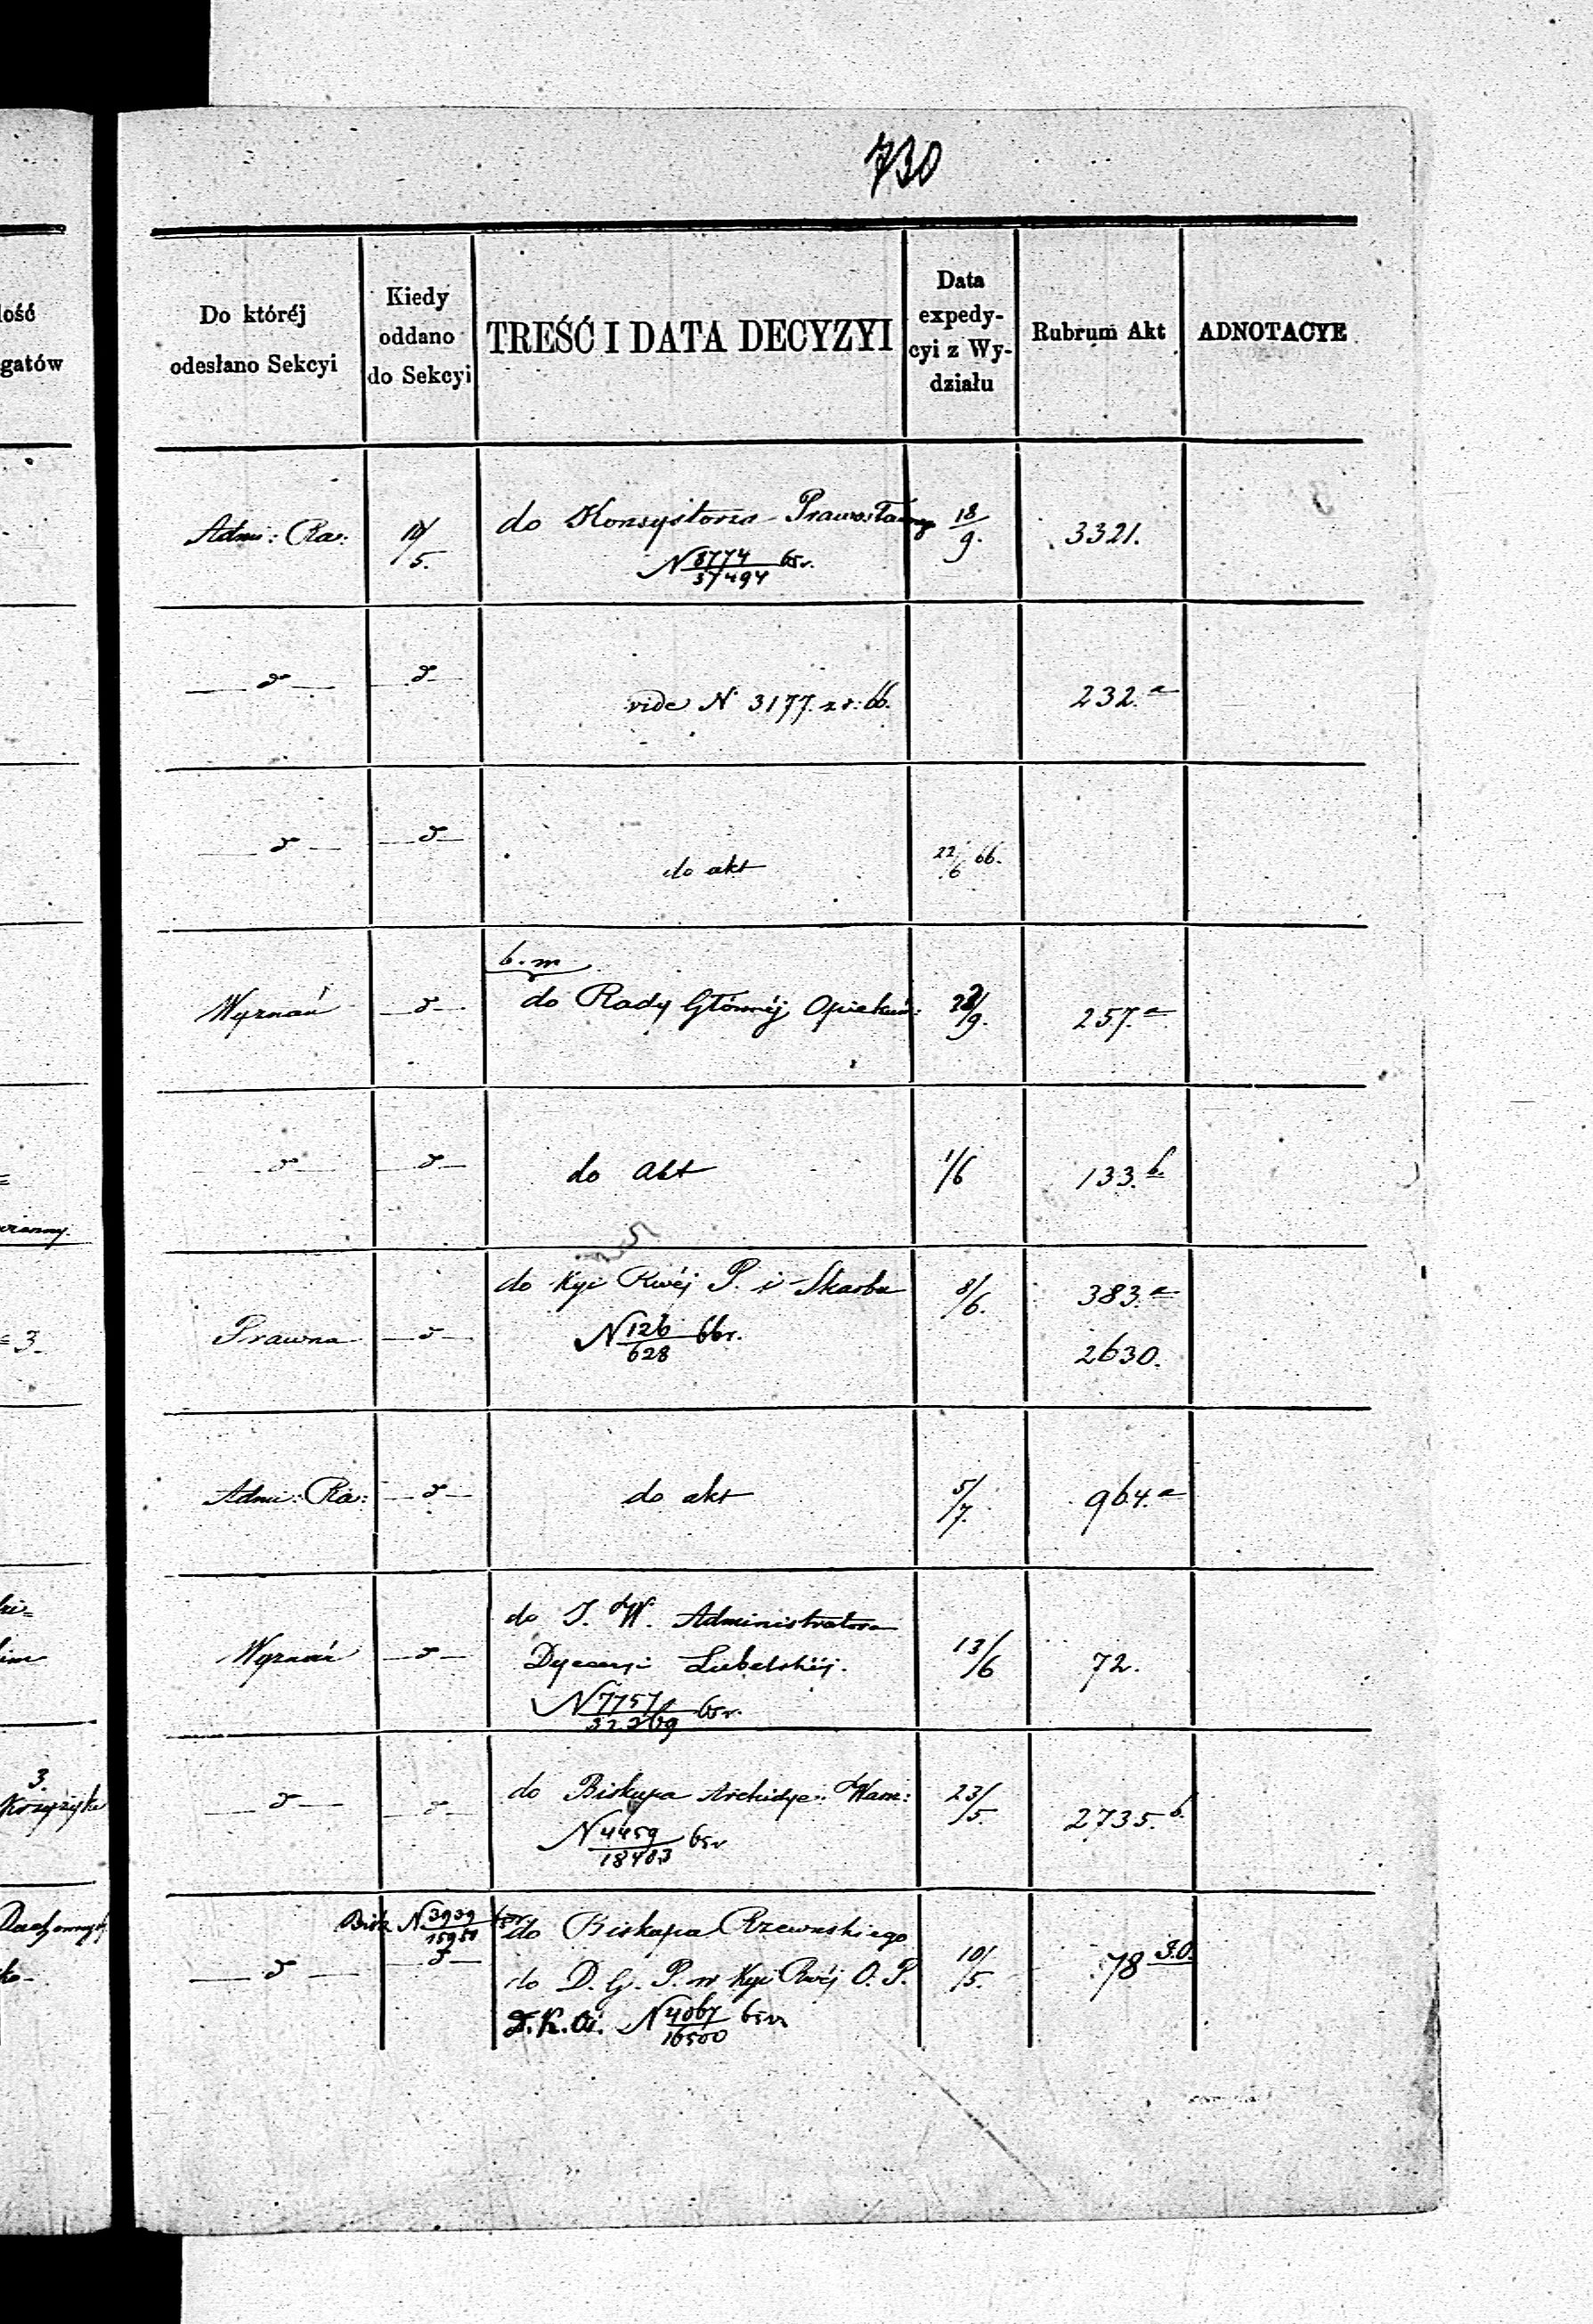 730
lość
gatów
Do któréj
odesłano Sekcyi
Kiedy
oddano
do Sekcyi
TREŚĆ I DATA DECYZYI
Data
expedy-
cyi z Wy-
działu
Rubrum Akt
ADNOTACYE
Admi: Ra:
19/5.
do Konsystorza Prawosławnego
N 8774/37494 65r.
18/9.
3321.
vide N 3177. z r: 66.
232.a
do akt
22/6 66.
Wyznań
b. m
do Rady Głównéj Opiekuń:
257.a
do Akt
1/6
133.b
Prawna
do Kyi Rwéj P. i Skarbu
N 126/628 66r.
8/6.
383.a
2630.
3.
Admi: Ra:
do akt
5/7.
964.a
Wyznań
do J. W. Administratora
Dyecezyi Lubelskiéj.
N 7757/32269 65r.
13/6
72.
3.
Krzyżyka
do Biskupa Archidye: Warn:
N 4459/18403 65r
23/5.
2735.b.
N 3939/15951 65r.
do Biskupa Rzewuskiego
do D. G. P. w Kyi Rwéj O. P.
N 4067/16500 65r
10/5.
78